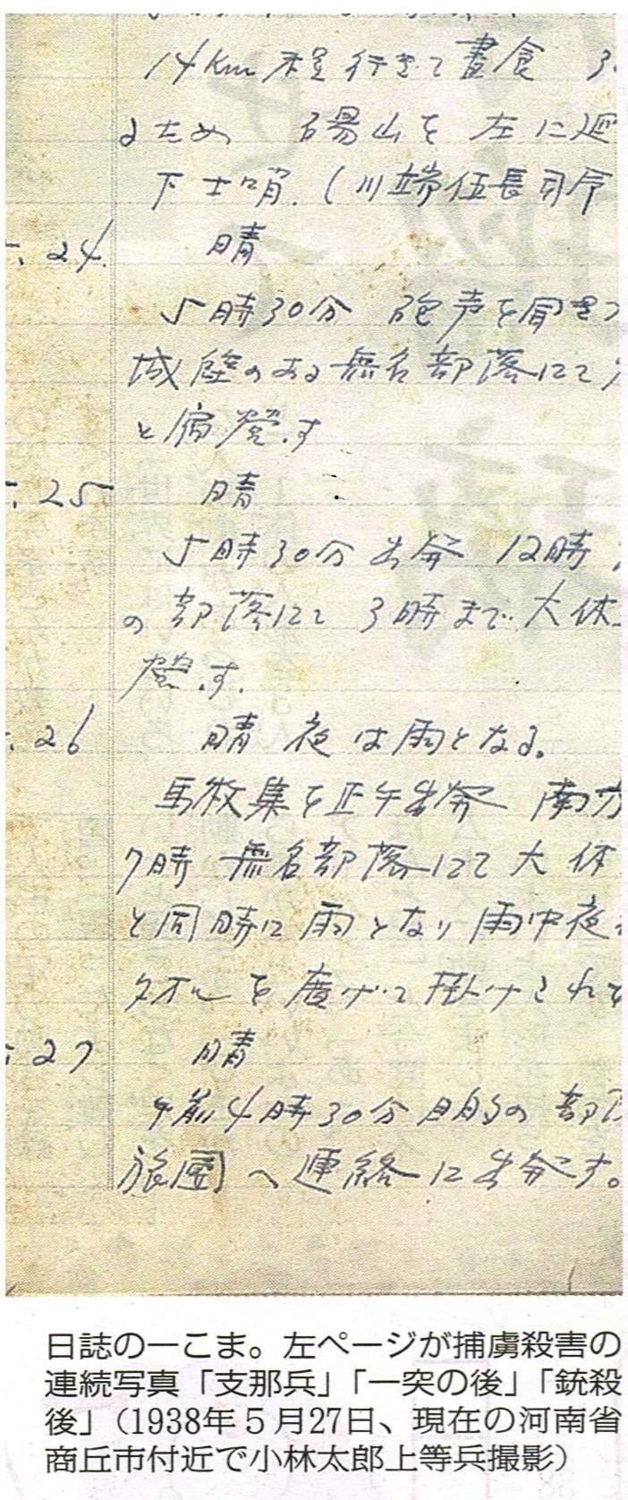 14Km程行きて晝食
るため 碭山を左に迂
下士哨.(川端伍長司令
.24. 晴
5時30分 砲声を聞きつ
城壁のある無名部落にて
と宿營.す
.25 晴
5時30分出発 12時
の部落にて 3時まで.大休
營.す.
.26 晴 夜は雨となる。
馬牧集を正午出発 南方
7時 無名部落にて 大休
と同時に雨となり雨中夜
タオルを廣げて掛けされて
.27 晴
午前4時30分目的の部
旅團へ連絡に出発す。
日誌の一こま。左ページが捕虜殺害の
連続写真「支那兵」「一突の後」「銃殺
後」（1938年５月27日、現在の河南省
商丘市付近で小林太郎上等兵撮影）